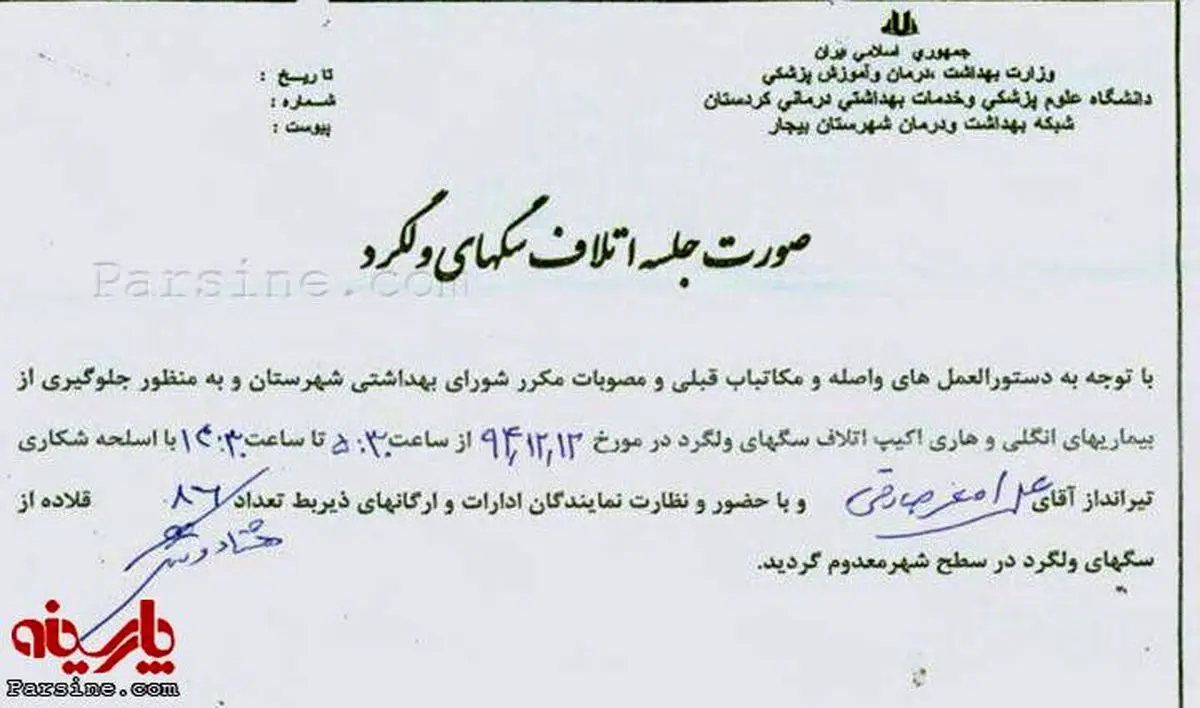 جمهوري اسلامي ايران
وزارت بهداشت ،درمان وآموزش پزشكي
دانشگاه علوم پزشكي وخدمات بهداشتي درماني كردستان
شبكه بهداشت ودرمان شهرستان بيجار
تاريخ :
شماره :
پيوست :
صورت جلسه اتلاف سگهای ولگرد
Parsine.com
با توجه به دستورالعمل های واصله و مکاتباب قبلی و مصوبات مکرر شورای بهداشتی شهرستان و به منظور جلوگیری از
بیماریهای انگلی و هاری اکیپ اتلاف سگهای ولگرد در مورخ ۹۴,۱۲,۱۲ از ساعت ۵:۳۰ تا ساعت ۱۴:۳۰ با اسلحه شکاری
تیرانداز آقای علی اصغر صادقی و با حضور و نظارت نمایندگان ادارات و ارگانهای ذیربط تعداد ۸۶ قلاده از
هشتاد و شش
سگهای ولگرد در سطح شهرمعدوم گردید.
پارسینه
Parsine.com